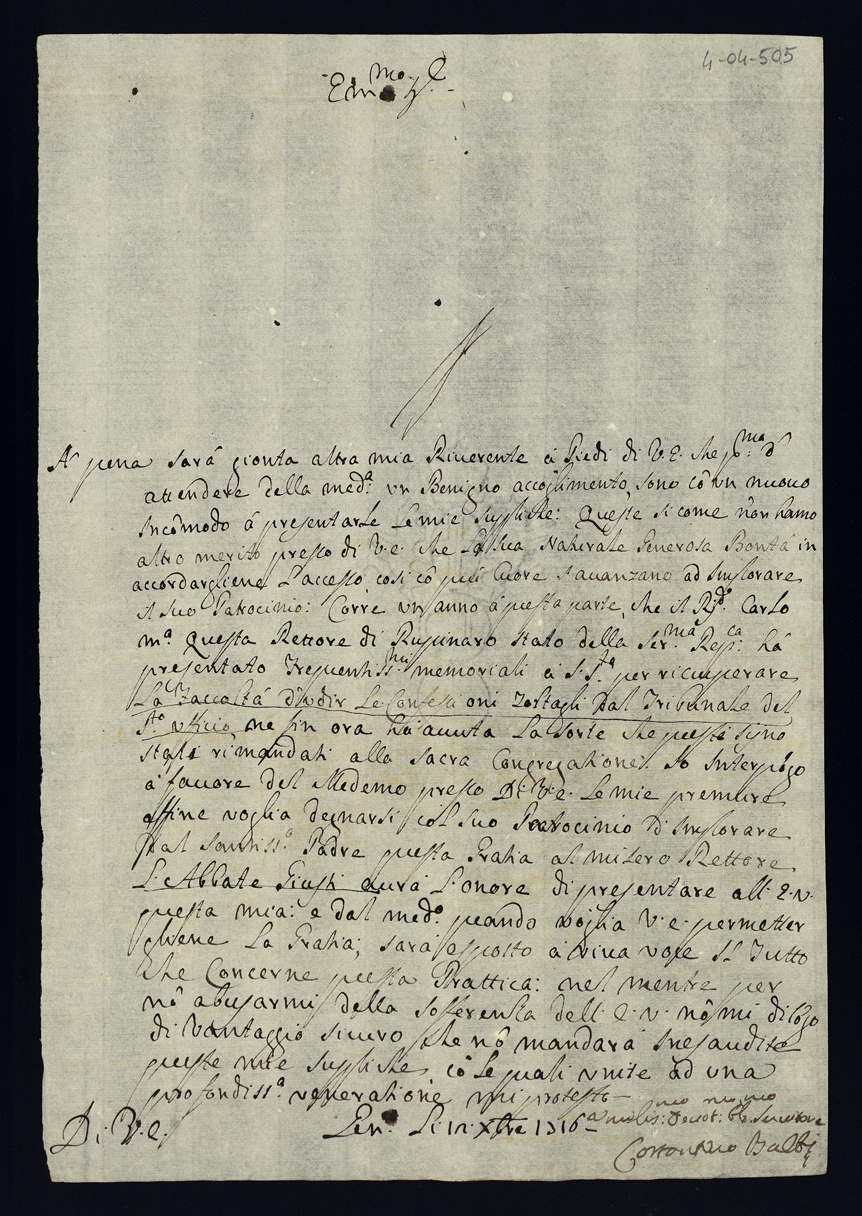 4-04-505
Em.mo S.e
A pena sarà gionta altra mia Riuerente à Piedi di V.E. che p.ma d'
attendere della med.a vn Benigno accoglimento, sono cõ vn nuouo
Incõmodo á presentarle le mie suppliche: Queste si come nõn hanno
altro merito presso di V.E. che La sua Naturale Generosa Bontà in
accordargliene L'accesso cosi cõ piú Cuore s'auanzano ad Implorare
il suo Patrocinio: Corre vn anno à questa parte, che il R.do Carlo
m.a Questa Rettore di Rupinaro stato della Ser.ma Rep.ca hà
presentato frequentiss.mi memoriali à S. S.tà per ricuperare
La facoltà d'Vdir Le Confessioni Toltagli dal Tribunale del
S.to Vfficio, ne sin ora hà auuta La Sorte che questi siino
stati rimandati alla Sacra Congregatione. Io Interpõgo
à fauore del Medemo presso Di V.E. Le mie premure
affine voglia degnarsi col suo Patrocinio d'Implorare
Dal Santiss.o Padre questa Gratia al misero Rettore
L'Abbate Giusti aurà L'onore di presentare all'E.V.
questa mia: e dal med.o quando voglia V.E. permetter
gliene La Gratia, sarà esposto à viua voce Il Tutto
che Concerne questa Prattica: nel mentre per
nõ abusarmi della sofferenza dell'E.V. nõ mi dilõgo
di Vantaggio sicuro che nõ mandarà Inesaudite
queste mie suppliche, cõ Le quali vnite ad una
profondiss.a veneratione mi protesto
Di V.E.
Gen.a Li 12 Xbre 1716
Deuot. Ob. Seruitore
Costantino Balbi